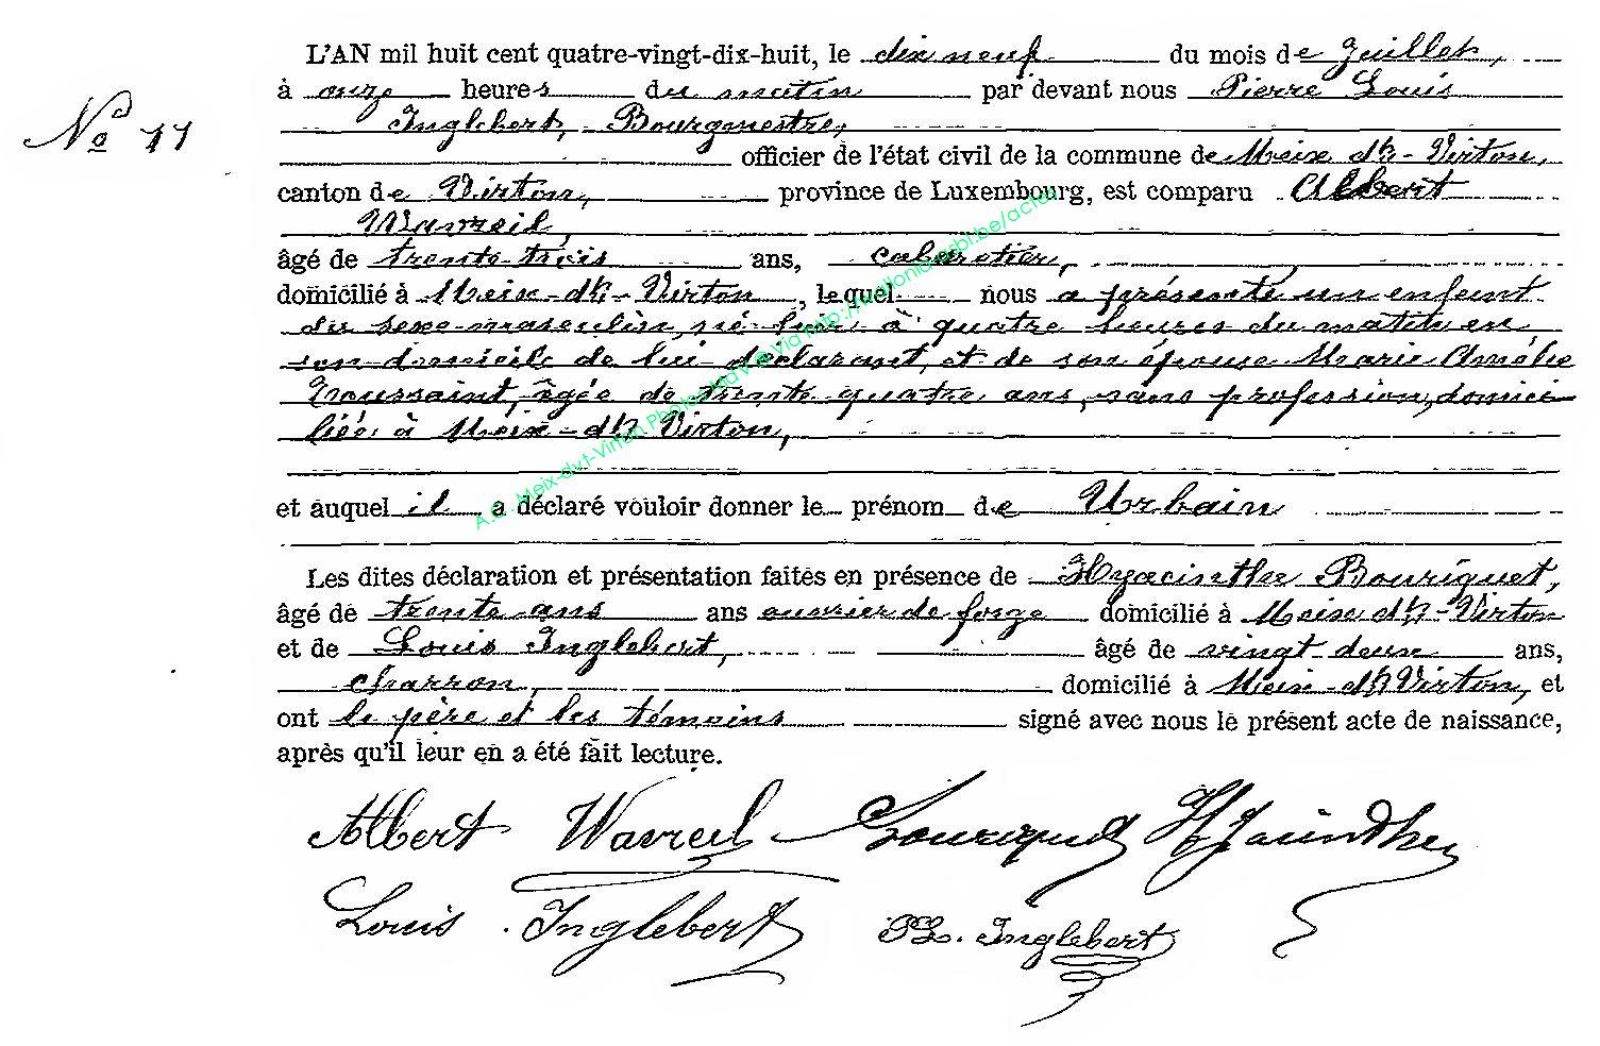 L'AN mil huit cent quatre-vingt-dix-huit, le dix neuf du mois de Juillet,
à onze heures du matin par devant nous Pierre Louis
Nº 11
Inglebert, Bourgmestre,
officier de l'état civil de la commune de Meix dt- Virton,
canton de Virton, province de Luxembourg, est comparu Albert
Wavreil,
âgé de trente-trois ans, cabaretier,
domicilié à Meix-dt-Virton, lequel nous a présenté un enfant
du sexe masculin, né hier à quatre heures du matin en
son domicile de lui déclarant, et de son épouse Marie Amélie
Toussaint, âgée de trente quatre ans, sans profession, domici
liée à Meix-dt Virton,
et auquel il a déclaré vouloir donner le prénom de Urbain
Les dites déclaration et présentation faites en présence de Hyacinthe Bouriquet,
âgé de trente ans ans ouvrier de forge domicilié à Meix dt-Virton
et de Louis Inglebert, âgé de vingt deux ans,
charron, domicilié à Meix-dt Virton, et
ont le père et les témoins signé avec nous le présent acte de naissance,
après qu'il leur en a été fait lecture.
Albert Wavreil Bouriquet Hyacinthe
Louis Inglebert PL. Inglebert